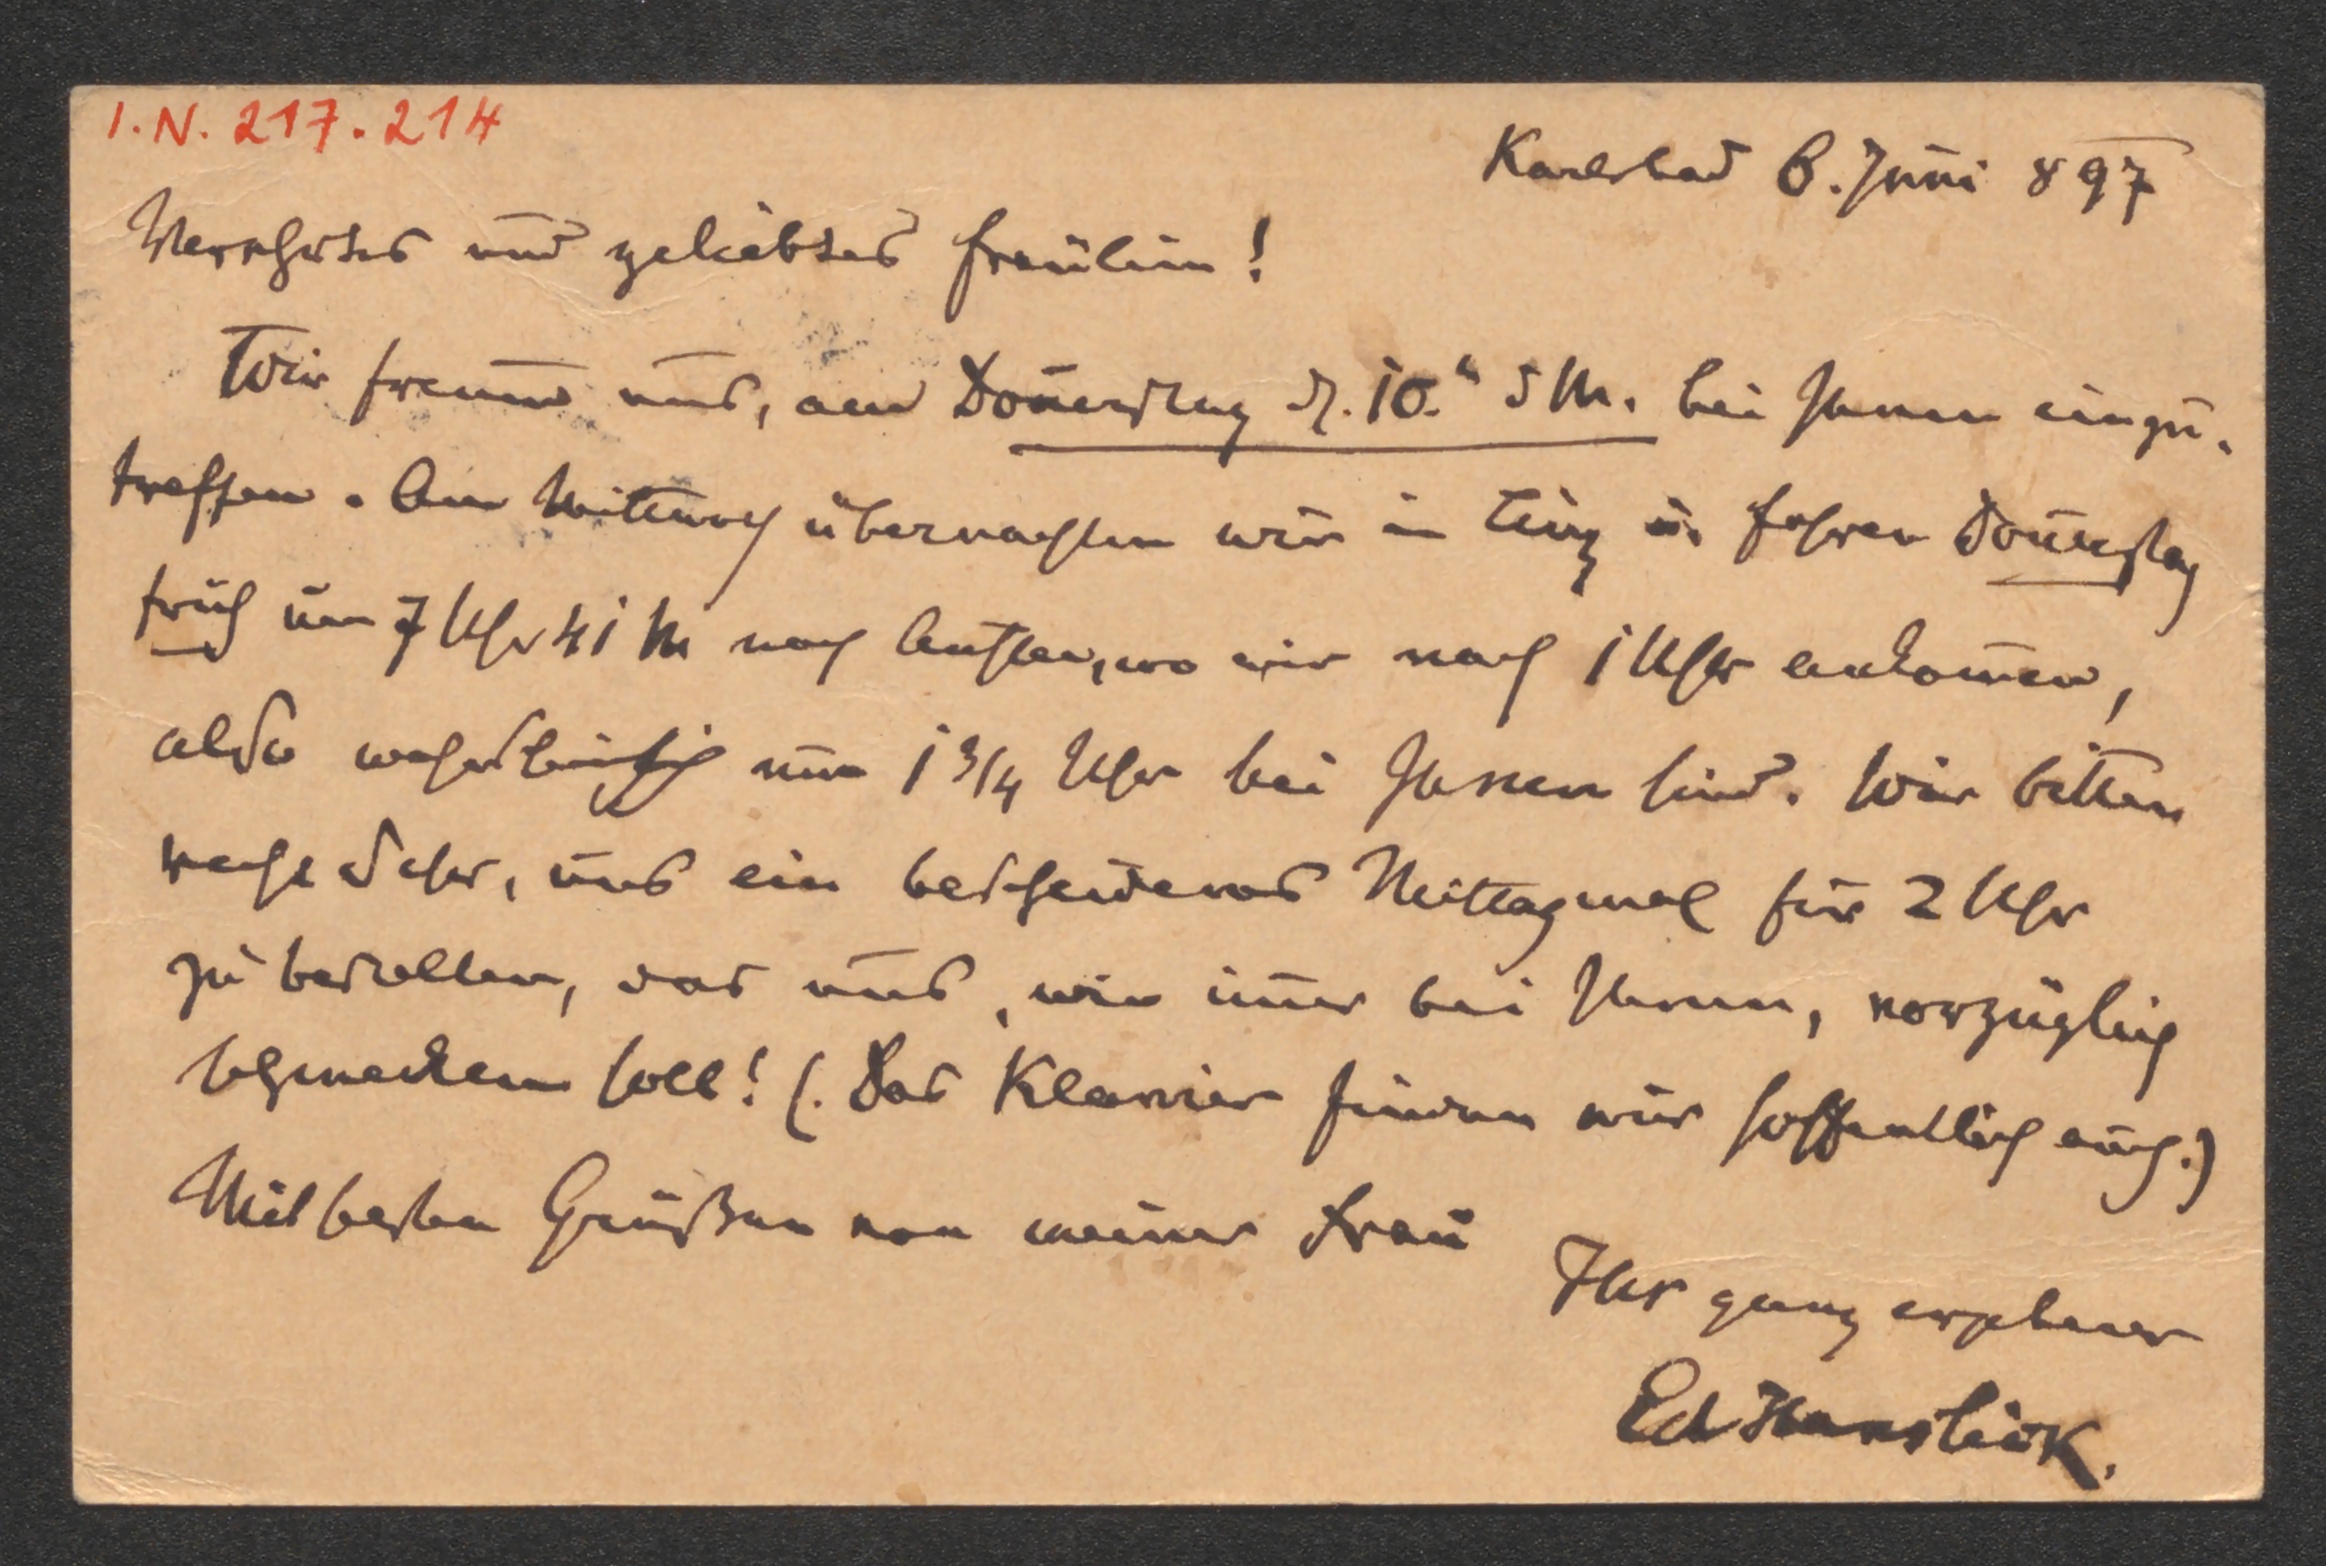 I.N. 217.214
Karlsbad 6. Juni 897
Verehrtes und geliebtes Fräulein!
Wir freuen uns, am Doñerstag d. 10.t d M. bei Ihnen einzu-
treffen. Am Mittwoch übernachten wir in Linz u. fahren Doñerstag
früh um 7 Uhr 41 M nach Aussee, wo wir nach 1 Uhr ankom̄en,
also wahrscheinlich um 1 3/4 Uhr bei Ihnen sind. Wir bitten
recht sehr, uns ein bescheidenes Mittagmal für 2 Uhr
zu bestellen, das uns, wie im̄er bei Ihnen, vorzüglich
schmecken soll! (Das Klavier finden wir hoffentlich auch.)
Mit besten Grüßen von meiner Frau
Ihr ganz ergebener
Ed Hanslick.